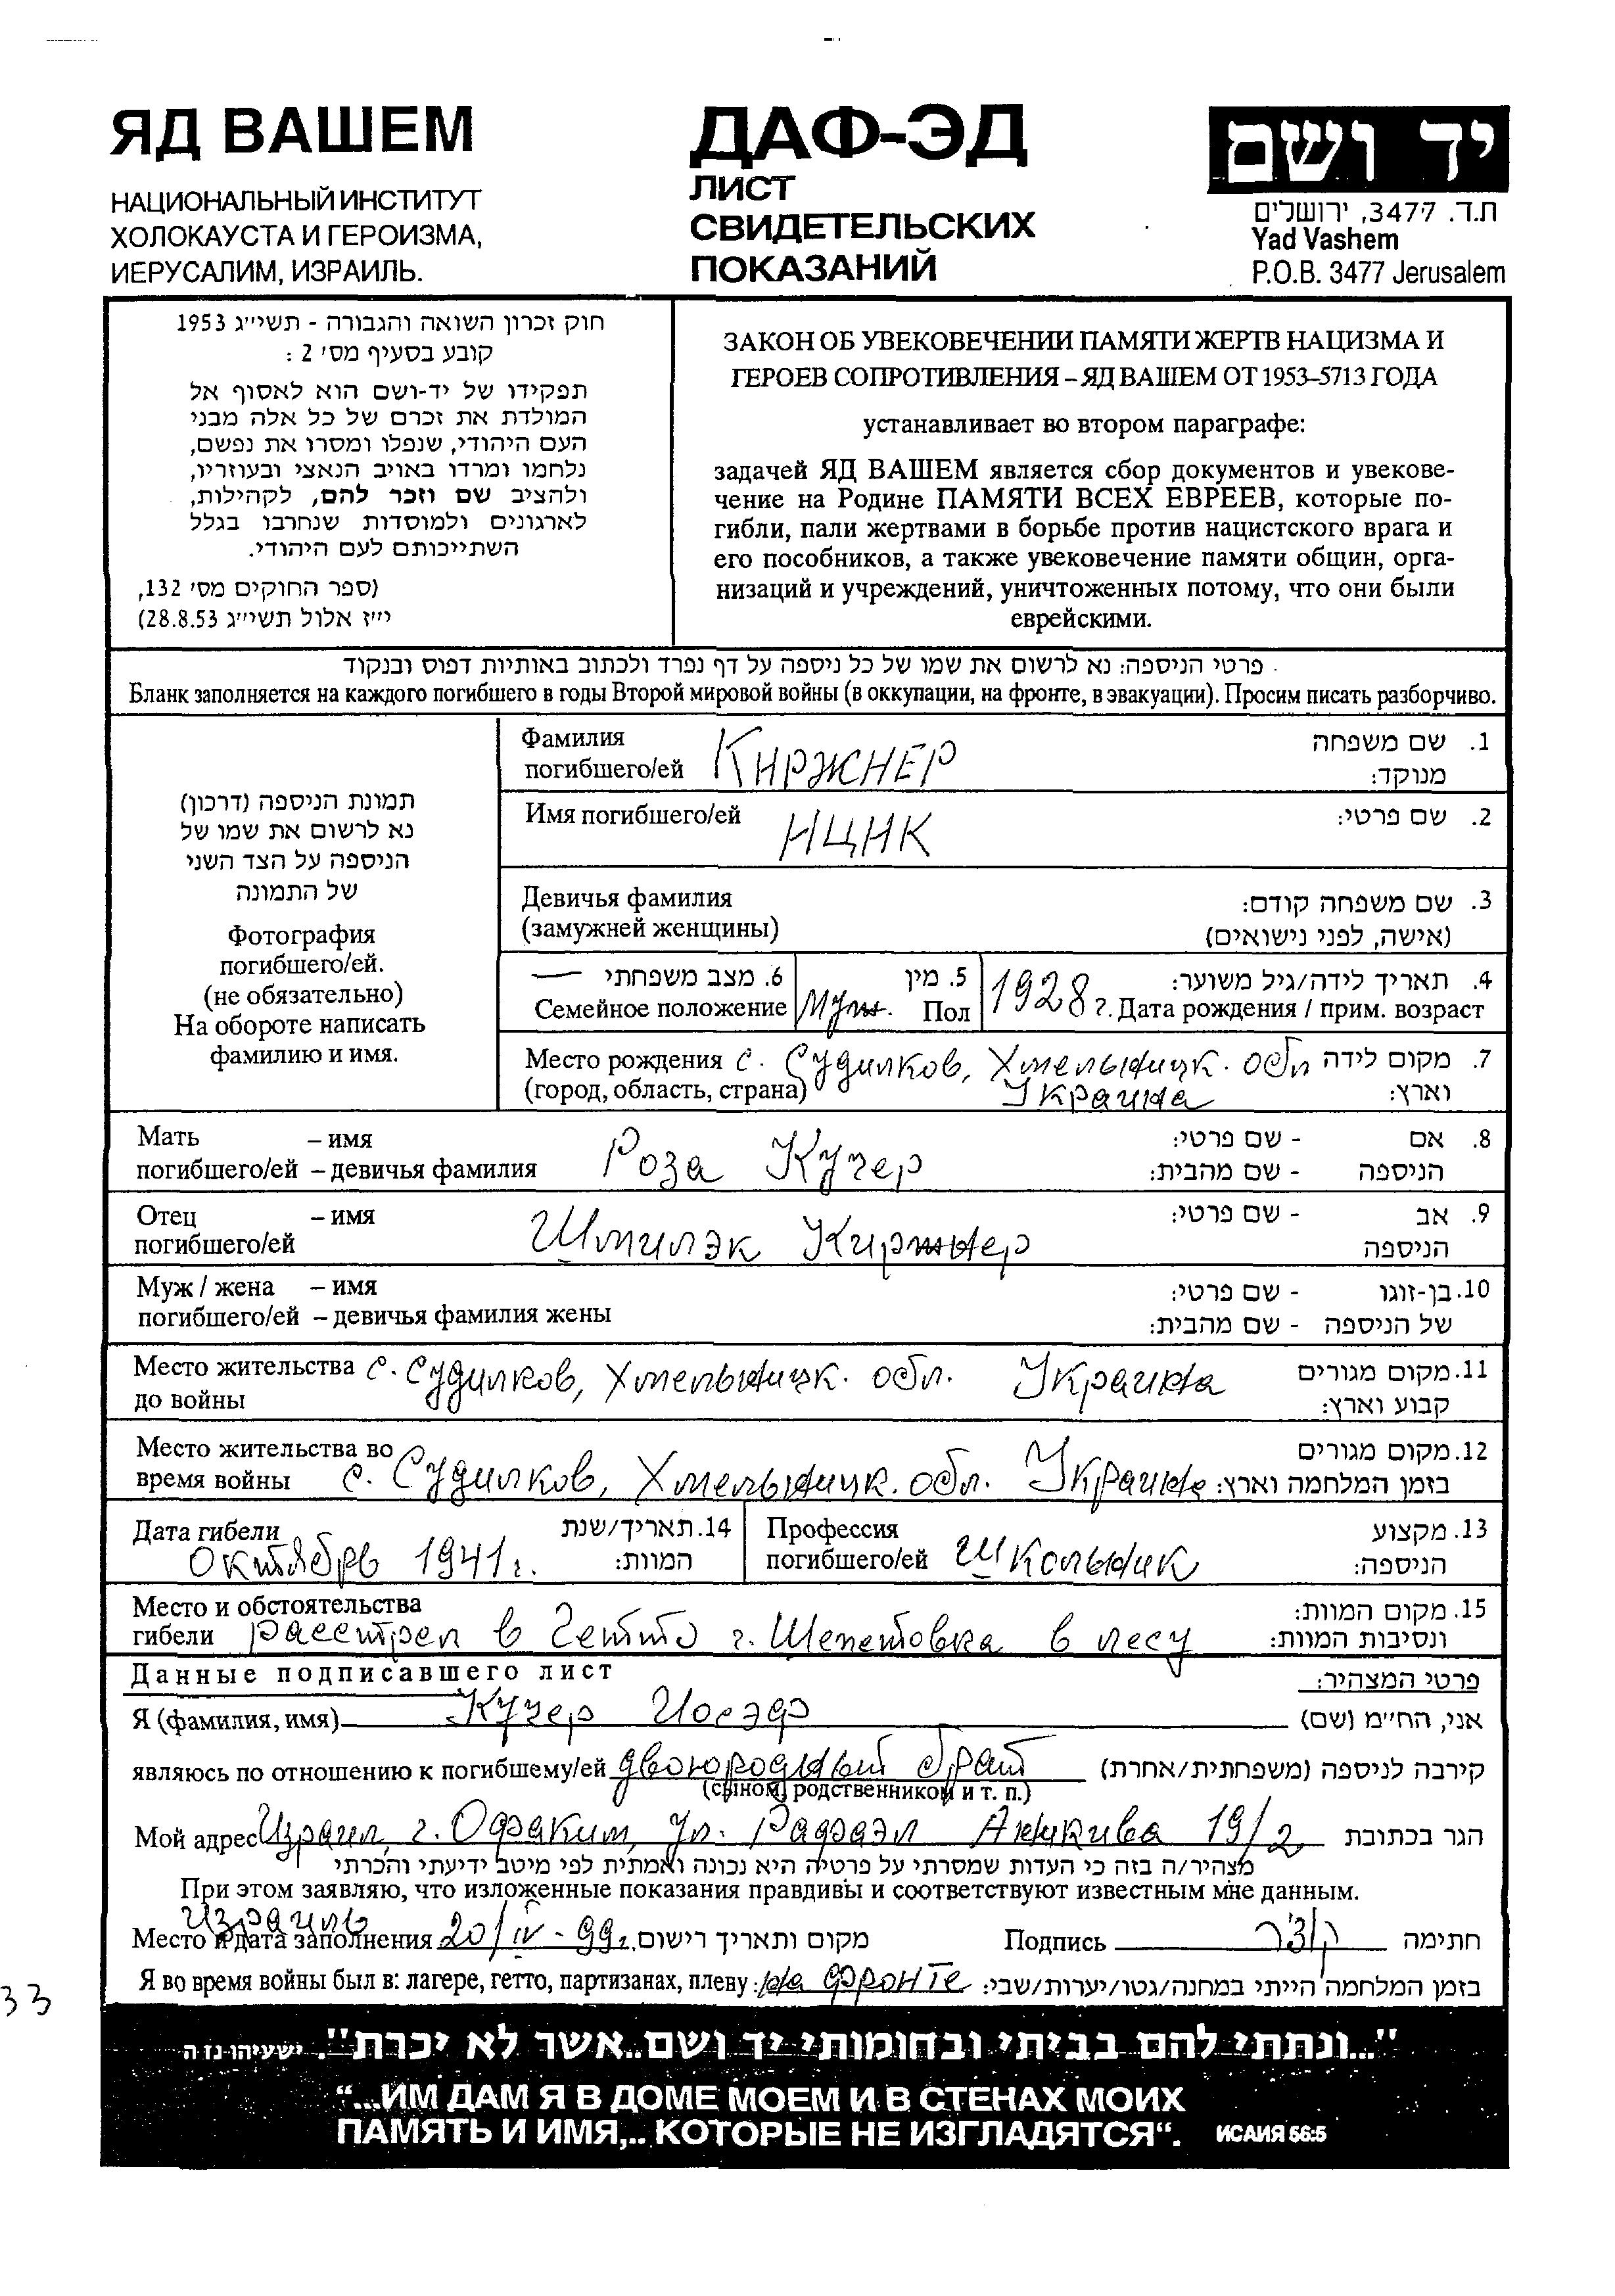 ЯД ВАШЕМ
НАЦИОНАЛЬНЫЙ ИНСТИТУТ
ХОЛОКАУСТА И ГЕРОИЗМА,
ИЕРУСАЛИМ, ИЗРАИЛЬ.
ДАФ-ЭД
ЛИСТ
СВИДЕТЕЛЬСКИХ
ПОКАЗАНИЙ
יד ושם
ת.ד. 3477, ירושלים
Yad Vashem
P.O.B. 3477 Jerusalem
חוק זכרון השואה והגבורה - תשי״ג 1953
קובע בסעיף מס׳ 2 :
תפקידו של יד-ושם הוא לאסוף אל
המולדת את זכרם של כל אלה מבני
העם היהודי, שנפלו ומסרו את נפשם,
נלחמו ומרדו באויב הנאצי ובעוזריו,
ולהציב שם וזכר להם, לקהילות,
לארגונים ולמוסדות שנחרבו בגלל
השתייכותם לעם היהודי.
(ספר החוקים מס׳ 132,
י״ז אלול תשי״ג 28.8.53)
ЗАКОН ОБ УВЕКОВЕЧЕНИИ ПАМЯТИ ЖЕРТВ НАЦИЗМА И
ГЕРОЕВ СОПРОТИВЛЕНИЯ – ЯД ВАШЕМ ОТ 1953–5713 ГОДА
устанавливает во втором параграфе:
задачей ЯД ВАШЕМ является сбор документов и увекове-
чение на Родине ПАМЯТИ ВСЕХ ЕВРЕЕВ, которые по-
гибли, пали жертвами в борьбе против нацистского врага и
его пособников, а также увековечение памяти общин, орга-
низаций и учреждений, уничтоженных потому, что они были
еврейскими.
פרטי הניספה: נא לרשום את שמו של כל ניספה על דף נפרד ולכתוב באותיות דפוס ובנקוד
Бланк заполняется на каждого погибшего в годы Второй мировой войны (в оккупации, на фронте, в эвакуации). Просим писать разборчиво.
תמונת הניספה (דרכון)
נא לרשום את שמו של
הניספה על הצד השני
של התמונה
Фотография
погибшего/ей.
(не обязательно)
На обороте написать
фамилию и имя.
Фамилия КИРЖНЕР 1. שם משפחה
погибшего/ей מנוקד:
Имя погибшего/ей ИЦИК 2. שם פרטי:
Девичья фамилия 3. שם משפחה קודם:
(замужней женщины) (אישה, לפני נישואים)
— 6. מצב משפחתי 5. מין 4. תאריך לידה/גיל משוער:
Семейное положение Муж. Пол 1928 г. Дата рождения / прим. возраст
Место рождения с. Судилков, Хмельницк. обл 7. מקום לידה
(город, область, страна) Украина וארץ:
Мать – имя Роза Кучер 8. אם - שם פרטי:
погибшего/ей – девичья фамилия הניספה - שם מהבית:
Отец – имя Шмилэк Киржнер 9. אב - שם פרטי:
погибшего/ей הניספה
Муж / жена – имя 10. בן-זוגו - שם פרטי:
погибшего/ей – девичья фамилия жены של הניספה - שם מהבית:
Место жительства с. Судилков, Хмельницк. обл. Украина 11. מקום מגורים
до войны קבוע וארץ:
Место жительства во 12. מקום מגורים
время войны с. Судилков, Хмельницк. обл. Украина בזמן המלחמה וארץ:
Дата гибели 14. תאריך/שנת Профессия 13. מקצוע
октябрь 1941 г. המוות: погибшего/ей Школьник הניספה:
Место и обстоятельства 15. מקום המוות:
гибели расстрел в Гетто г. Шепетовка в лесу ונסיבות המוות:
Данные подписавшего лист פרטי המצהיר:
Я (фамилия, имя) Кучер Иосэф אני, הח״מ (שם)
являюсь по отношению к погибшему/ей двоюродный брат קירבה לניספה (משפחתית/אחרת)
(сыном, родственником и т. п.)
Мой адрес Израил, г. Офаким, ул. Рафаэл Анжкива 19/2 הגר בכתובת
מצהיר/ה בזה כי העדות שמסרתי על פרטיה היא נכונה ואמתית לפי מיטב ידיעתי והכרתי
При этом заявляю, что изложенные показания правдивы и соответствуют известным мне данным.
Израиль
Место и дата заполнения 20/IV - 99г. מקום ותאריך רישום, Подпись חתימה
Я во время войны был в: лагере, гетто, партизанах, плену: на фронте בזמן המלחמה הייתי במחנה/גטו/יערות/שבי:
33
"...ונתתי להם בביתי ובחומותי יד ושם..אשר לא יכרת". ישעיהו נז ה
“...ИМ ДАМ Я В ДОМЕ МОЕМ И В СТЕНАХ МОИХ
ПАМЯТЬ И ИМЯ,.. КОТОРЫЕ НЕ ИЗГЛАДЯТСЯ“. ИСАИЯ 56:5